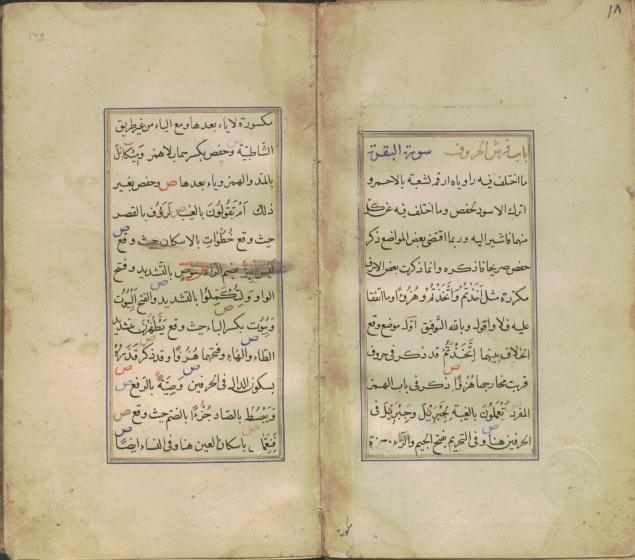 ١٨
باب فرش الحروف سورة البقرة
ما اختلف فيه راوياه ارقم لشعبة بالاحمر و
اترك الاسود لحفص وما اختلف فيه عن كل
منهما فاشير اليه وربما اقتضى بعض المواضع ذكر
حفص صريحا فاذكره وانما ذكرت بعض الاحرف
مكررة مثل اخذتم واتخذتم وهزوا وما اتفقا
عليه فلا واقوله وبالله التوفيق اول موضع وقع
الخلاف بينهما اتخذتم قد ذكر في حروف
قربت مخارجها هزوا ذكر في باب الهمز
المفرد تعملون بالغيبة لجبريل وجبريل في
الحرفين هنا وفي التحريم بفتح الجيم والراء وهمزة
مكسورة
مكسورة لا ياء بعدها ومع الياء من غير طريق
الشاطبية وحفص بكسرهما بلا همز وميكائل
بالمد والهمز وياء بعدها ص وحفص بغير
ذلك ام تقولون بالغيب ص لرؤف بالقصر
حيث وقع خطوات بالاسكان حيث وقع
ليس البر بضم الراء موص بالتشديد وفتح
الواو ولتكملوا بالتشديد والفتح البيوت
وبيوت بكسر الباء حيث وقع يطهرن بتشديد
الطاء والهاء وفتحهما هزوا وقد ذكر قدره
بسكون الدال في الحرفين وصية بالرفع ص
ويبصط بالصاد جزءا بالضم حيث وقع ص
فنعما باسكان العين هنا وفي النساء ايضا